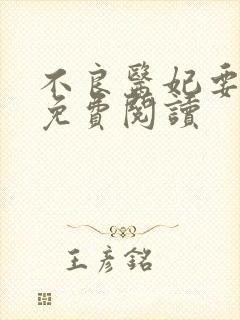 不良醫妃要
免費閱讀
王彥銘